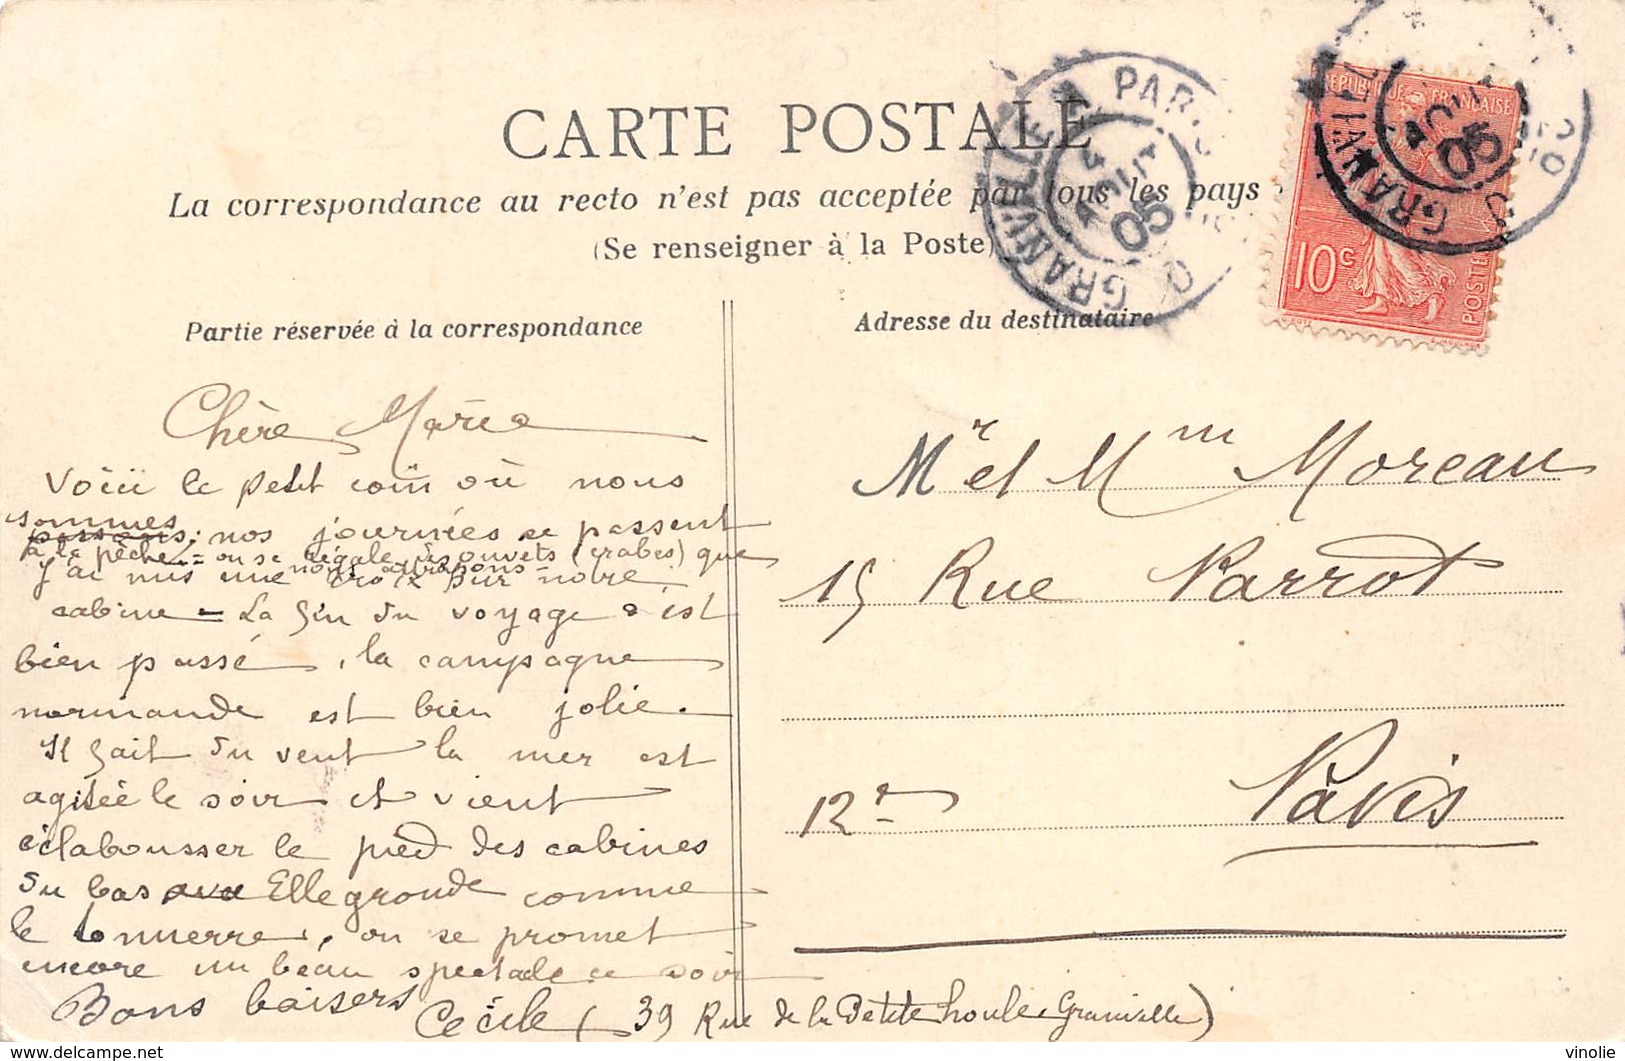 CARTE POSTALE
La correspondance au recto n'est pas acceptée par tous les pays
(Se renseigner à la Poste)
Partie réservée à la correspondance
Adresse du destinataire
GRANVILLE A PARIS
AOUT
05
GRANVILLE
AOUT
05
REPUBLIQUE FRANCAISE
10c
POSTES
Chère Marie
Voici le petit coin où nous
sommes
passons; nos journées se passent
à la pêche = on se régale d'ouvets (crabes) que
nous attrapons
J'ai mis une croix sur notre
cabine = La fin du voyage s'est
bien passé, la campagne
normande est bien jolie.
Il fait du vent la mer est
agitée le soir et vient
éclabousser le pied des cabines
du bas Elle gronde comme
le tonnerre, on se promet
encore un beau spectacle ce soir
Bons baisers
Cécile (39 Rue de la Petite houle Granville)
Mr et Mm Moreau
15 Rue Parrot
12e Paris
vinolie